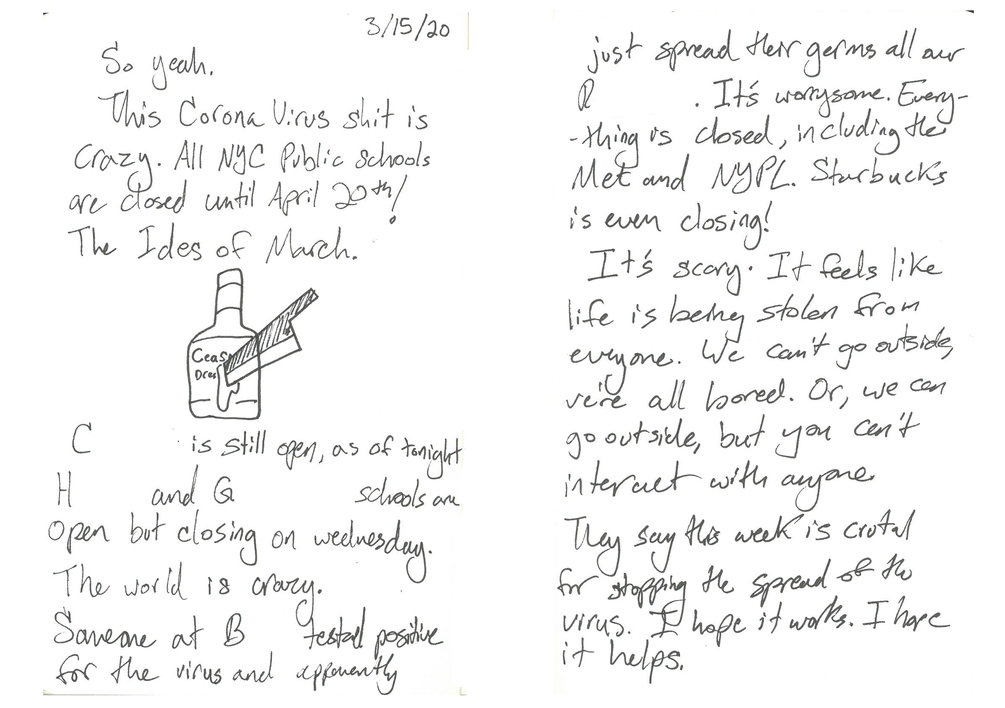 3/15/20
So yeah.
This Corona Virus shit is
crazy. All NYC Public schools
are closed until April 20th!
The Ides of March.
Ceas
Dres
C is still open, as of tonight
H and G schools are
open but closing on wednesday.
The world is crazy.
Someone at B tested positive
for the virus and apparently
just spread their germs all over
R . It's worrysome. Every-
-thing is closed, including the
Met and NYPL. Starbucks
is even closing!
It's scary. It feels like
life is being stolen from
everyone. We can't go outside,
we're all bored. Or, we can
go outside, but you can't
interact with anyone.
They say this week is crutal
for stopping the spread of the
virus. I hope it works. I hope
it helps.